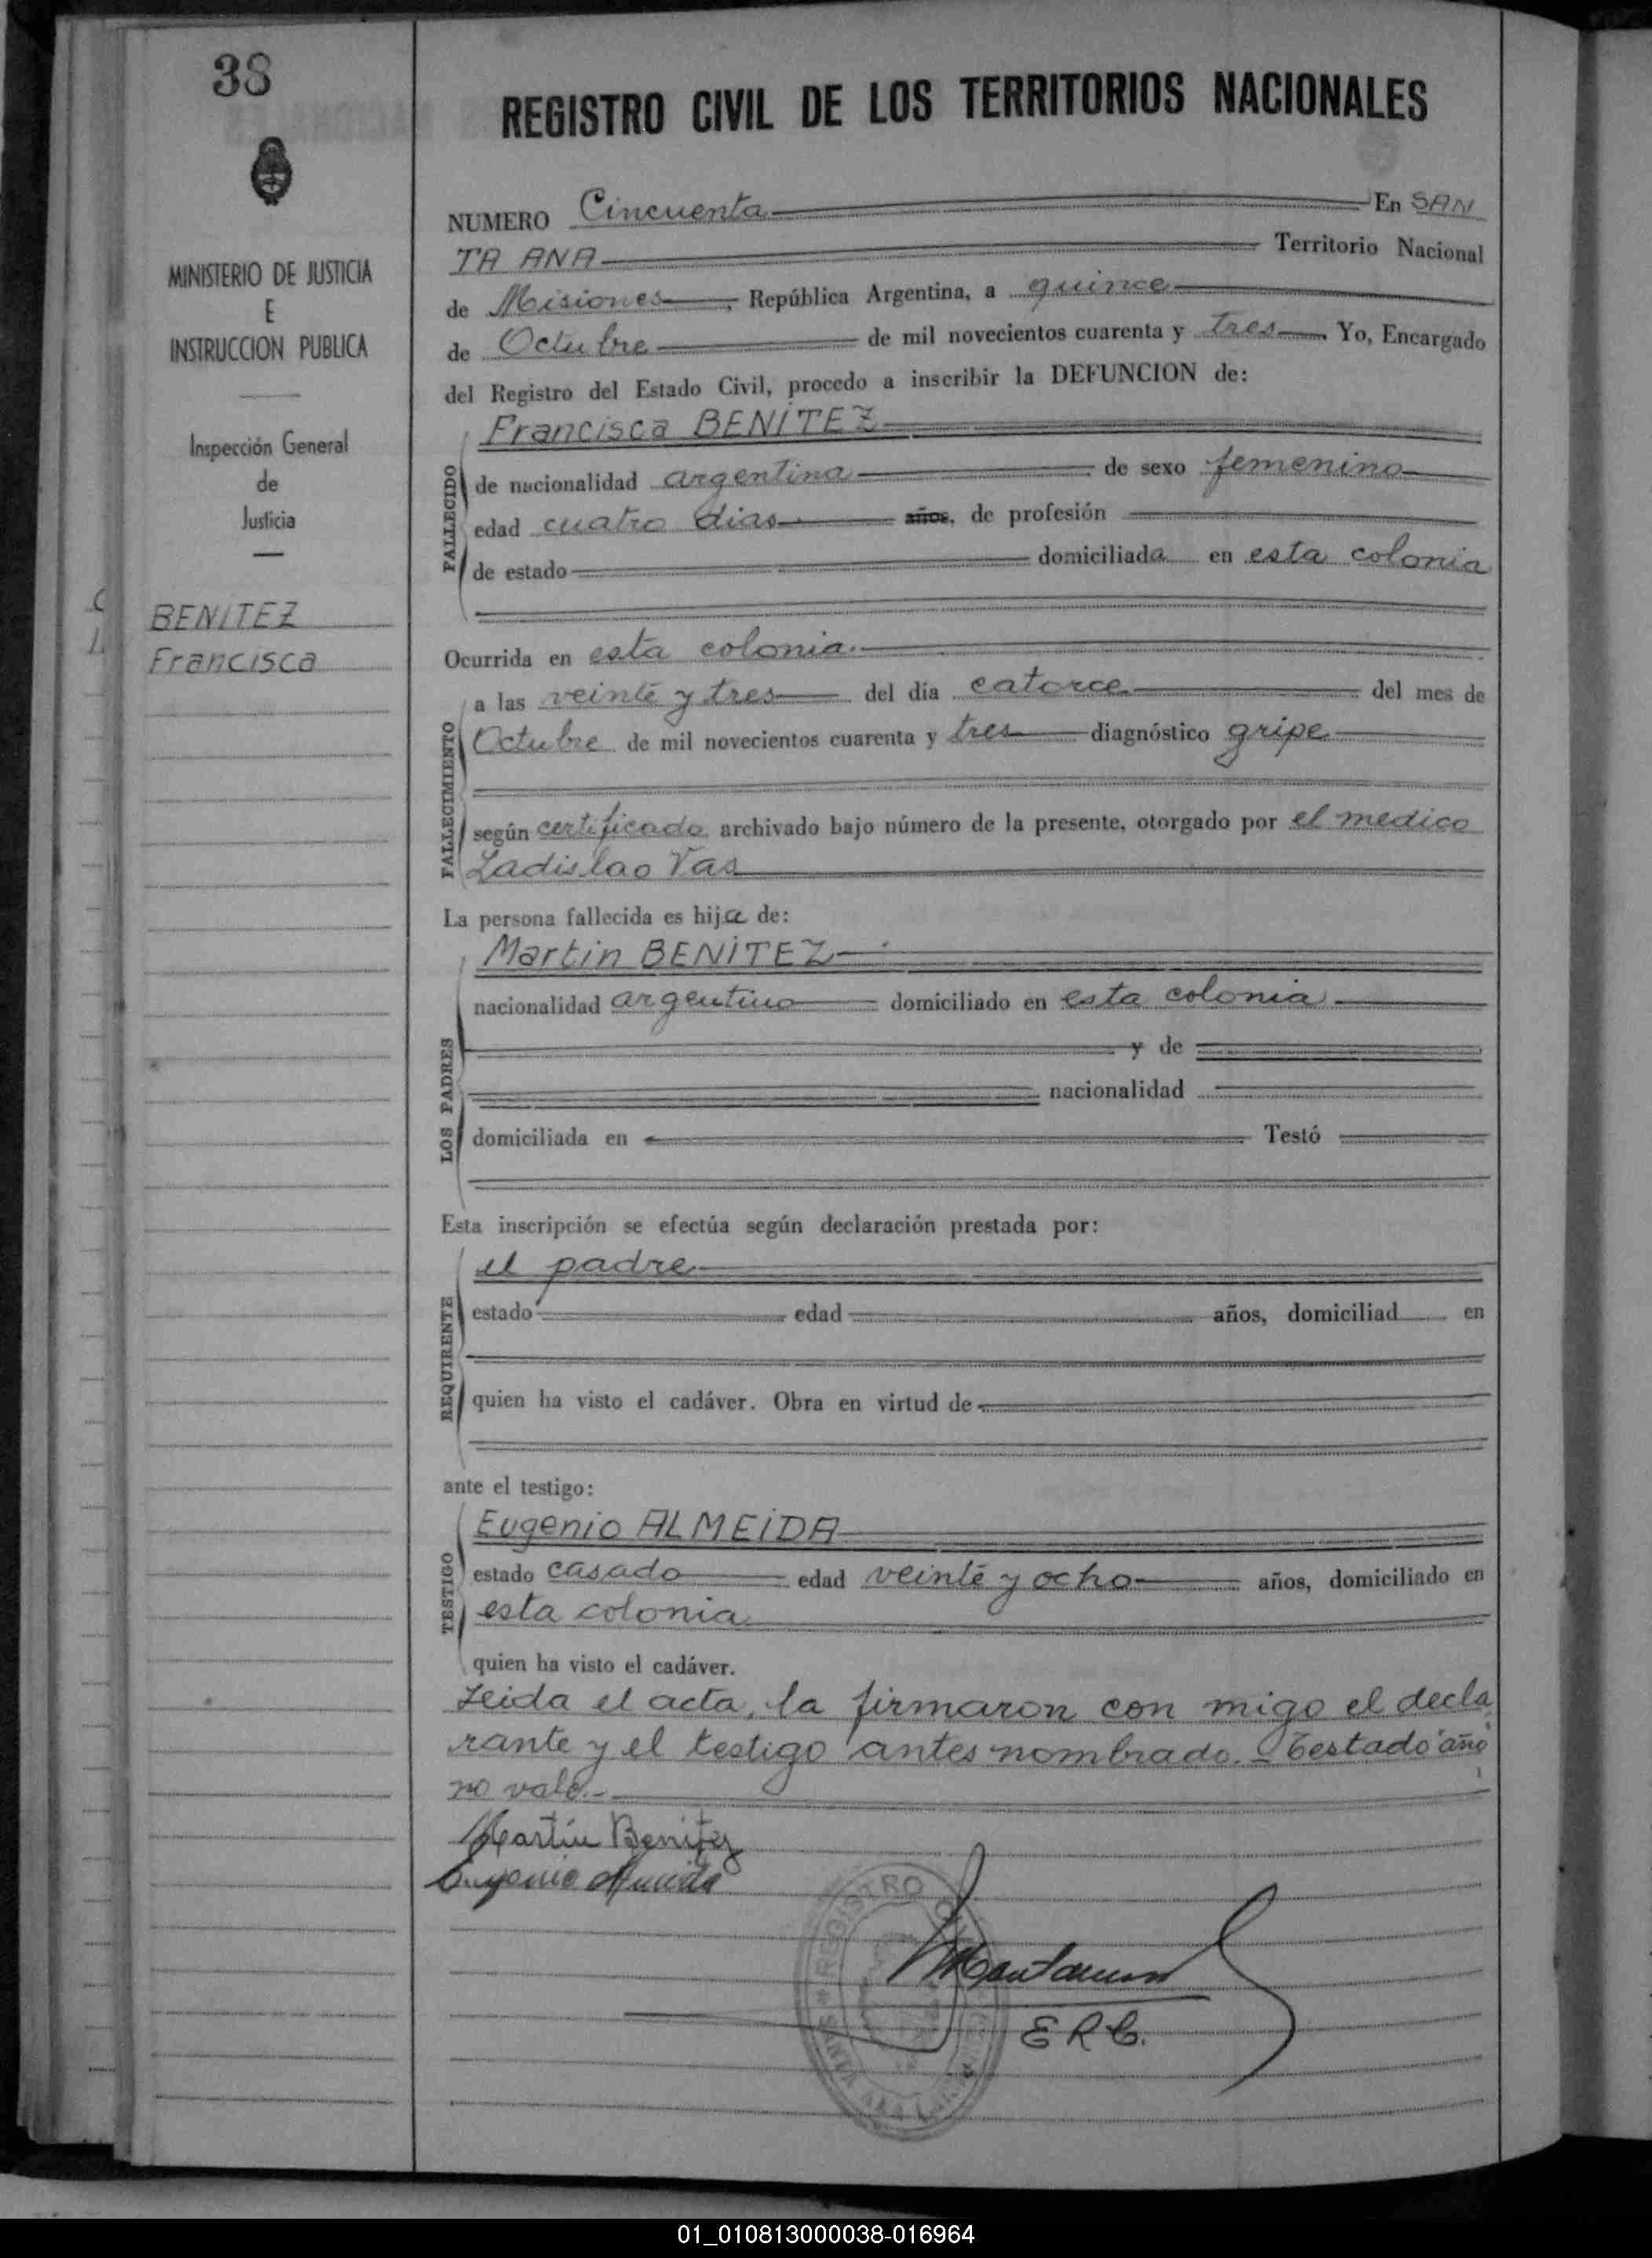 38
MINISTERIO DE JUSTICIA
E
INSTRUCCION PUBLICA
Inspección General
de
Justicia
BENITEZ
Francisca
REGISTRO CIVIL DE LOS TERRITORIOS NACIONALES
NUMERO Cincuenta En SAN
TA ANA Territorio Nacional
de Misiones, República Argentina, a quince
de Octubre de mil novecientos cuarenta y tres. Yo, Encargado
del Registro del Estado Civil, procedo a inscribir la DEFUNCION de:
Francisca BENITEZ
FALLECIDO
de nacionalidad argentina de sexo femenino
edad cuatro dias años, de profesión
de estado domiciliada en esta colonia
Ocurrida en esta colonia.
a las veinte y tres del día catorce del mes de
FALLECIMIENTO
Octubre de mil novecientos cuarenta y tres diagnóstico gripe
según certificado archivado bajo número de la presente, otorgado por el medico
Ladislao Vas
La persona fallecida es hija de:
Martin BENITEZ
nacionalidad argentino domiciliado en esta colonia
LOS PADRES
y de
nacionalidad
domiciliada en Testó
Esta inscripción se efectúa según declaración prestada por:
el padre
REQUIRENTE
estado edad años, domiciliad en
quien ha visto el cadáver. Obra en virtud de
ante el testigo:
Eugenio ALMEIDA
TESTIGO
estado casado edad veinte y ocho años, domiciliado en
esta colonia
quien ha visto el cadáver.
Leida el acta, la firmaron con migo el decla
rante y el testigo antes nombrado. - Testado "año"
no vale.-
Martín Benitez
Eugenio Almeida
REGISTRO
SANTA ANA
E R C.
01_010813000038-016964